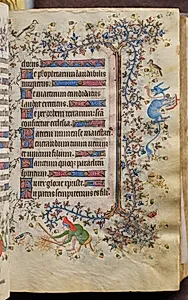 chorus
Te prophetarum laudabilis
numerus
Te martirum candidatus
laudat exercitus
Te per orbem terrarum sancta
confitetur ecclesia
Patrem immense maiestatis
Venerandum tuum verum
et unicum filium
Sanctum quoque paraclitum
spiritum
Tu rex glorie
Tu patris sempiternus es filius